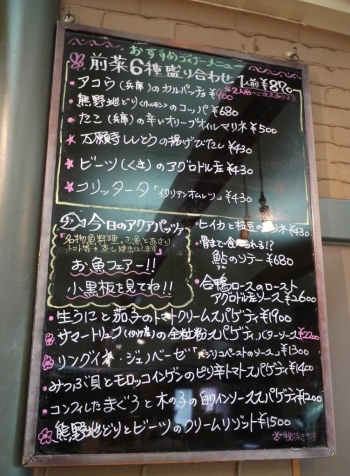 おすすめディナーメニュー
前菜6種盛り合わせ 1人前 ¥890
※2人前〜
・アコウ(兵庫)のカルパッチョ ¥900
・熊野地どりのコッパ ¥680
・たこ(兵庫)の辛いオリーブオイルマリネ ¥500
★万願寺しとうの揚げびたし ¥430
★ビーツ(くき)のアグロドルチェ ¥430
★フリッタータ「イタリアンオムレツ」 ¥430
今日のアクアパッツァ
「名物魚料理
お魚フェアー!!
小黒板を見てね!!
・ヒイカと枝豆のマリネ ¥430
骨まで食べれる!?
鮎のソテー ¥680
・合鴨ロースのロースト
アグロドルチェソース ¥2600
・生うにと茄子のトマトクリームスパゲティ ¥1900
サマートリュフの全粒粉スパゲティバターソース ¥2200
リングイネ・ジェノベーゼ「バジリコペーストのソース」 ¥1300
・みつぶ貝とモロッコインゲンのピリ辛トマトスパゲティ ¥1400
・コンフィしたまぐろと木の子の白ワインソーススパゲティ ¥1200
熊野地どりとビーツのクリームリゾット ¥1500